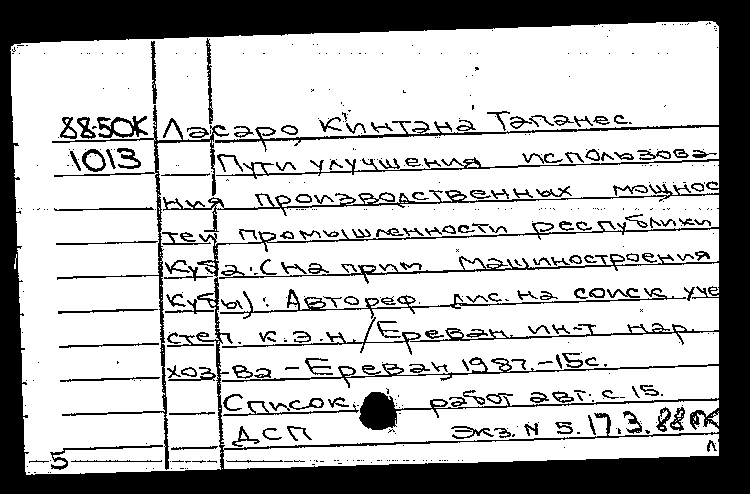 88-5OK Ласаро, Кинтана Тапанес.
1013 Пути улучшения использова-
ния производственных мощнос
тей промышленности республики
Куба: (на прим. машиностроения
Кубы): Автореф. дис. на соиск. уче
степ. к.э.н. / Ереван. ин-т нар.
хоз-ва - Ереван, 1987. - 15с.
Список работ авт. с 15.
ДСП Экз. N 5. 17.3.88
5